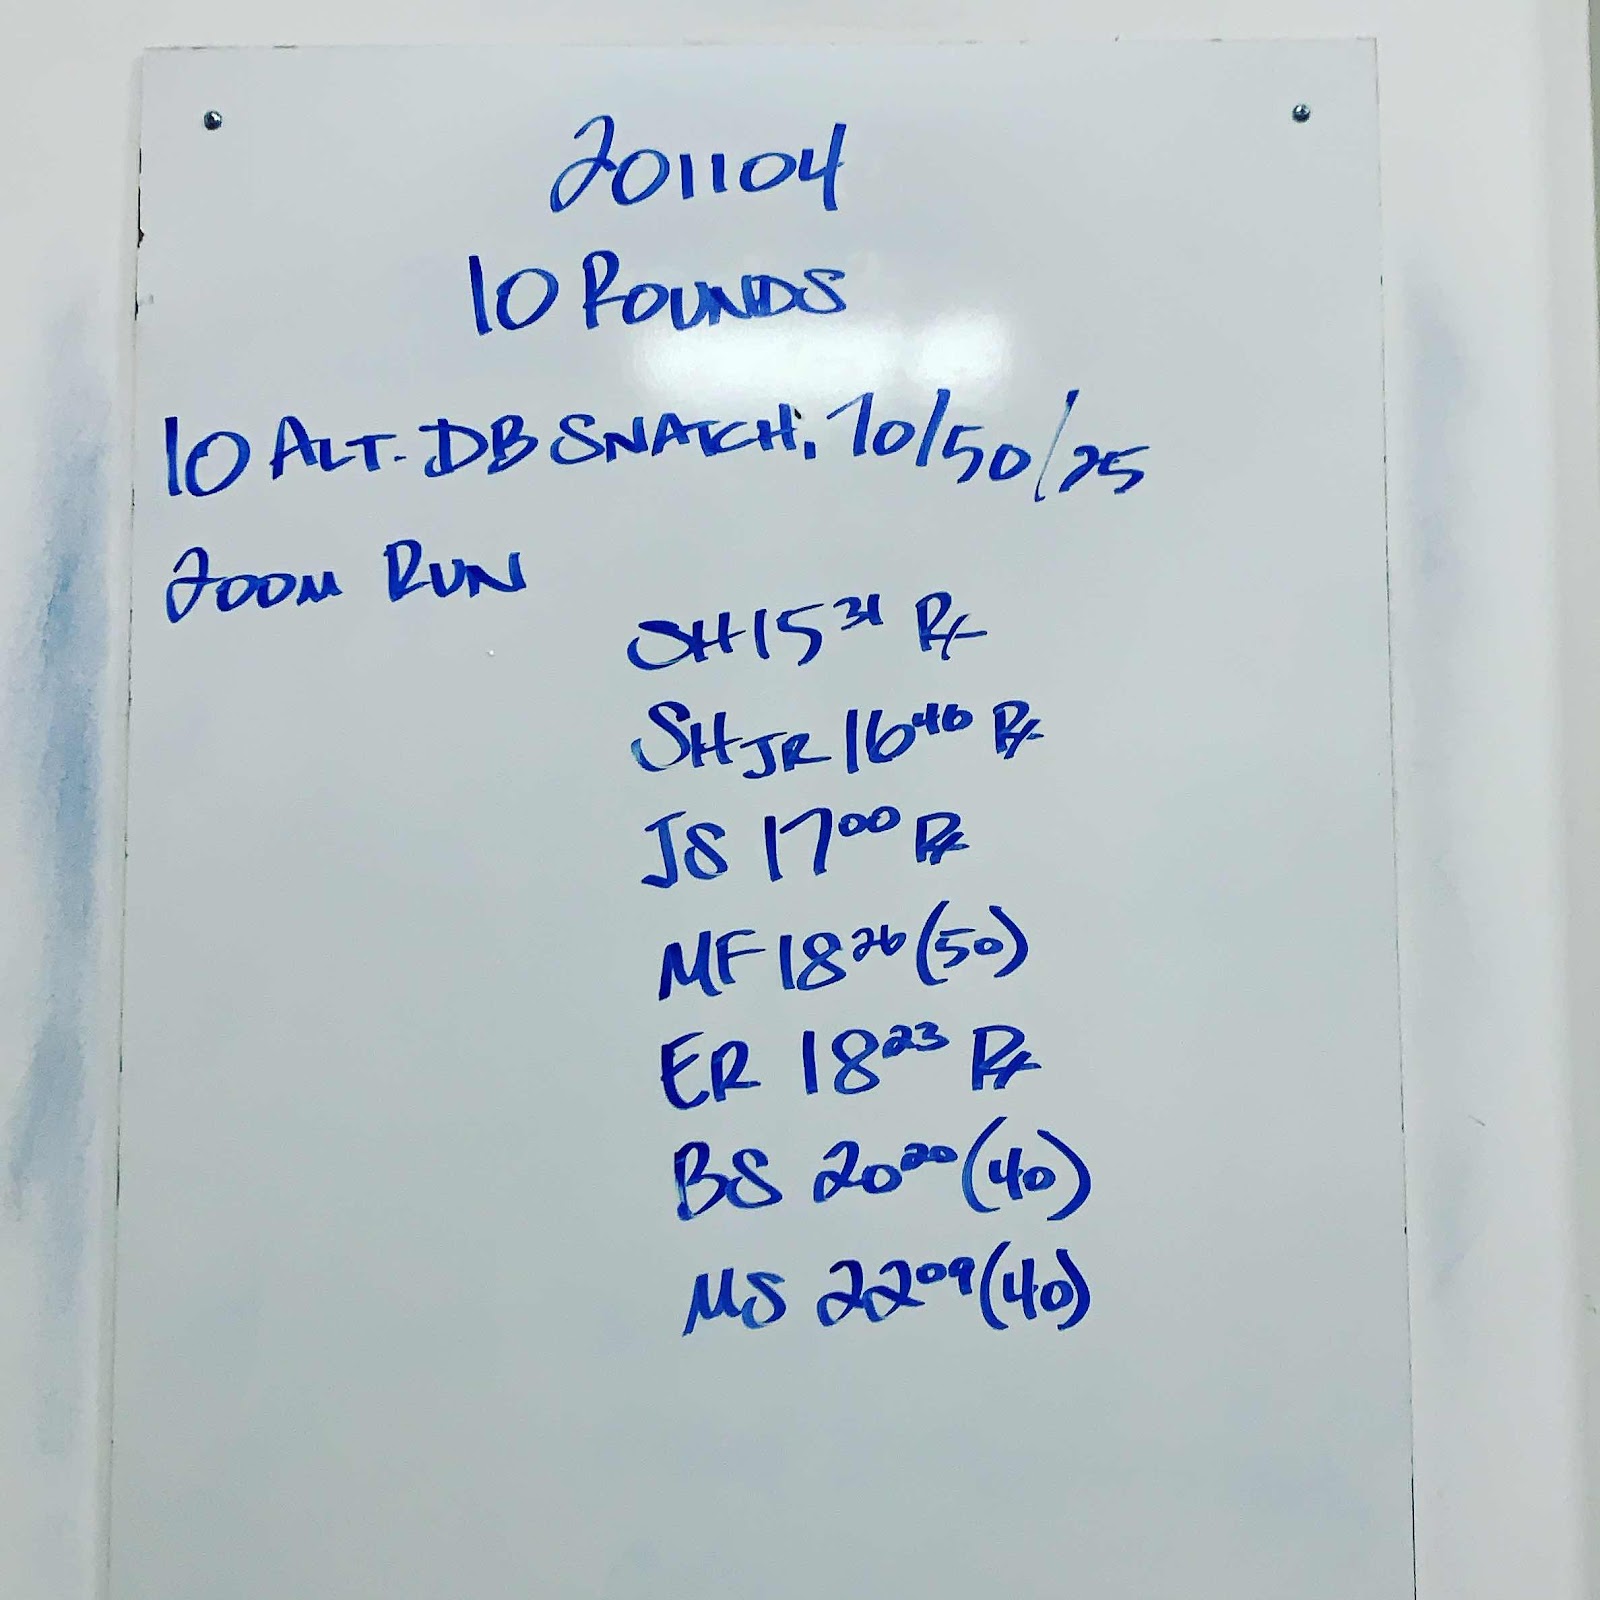 201104
10 ROUNDS
10 ALT. DB SNATCH, 70/50/25
200M RUN
SH 15 31 Rx
SH JR 16 46 Rx
JS 17 00 Rx
MF 18 26 (50)
ER 18 23 Rx
BS 20 20 (40)
MS 22 09 (40)